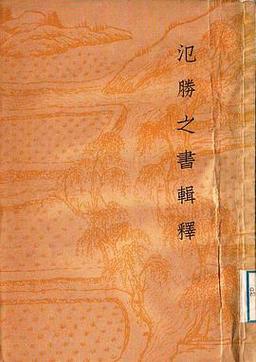 氾勝之書輯釋